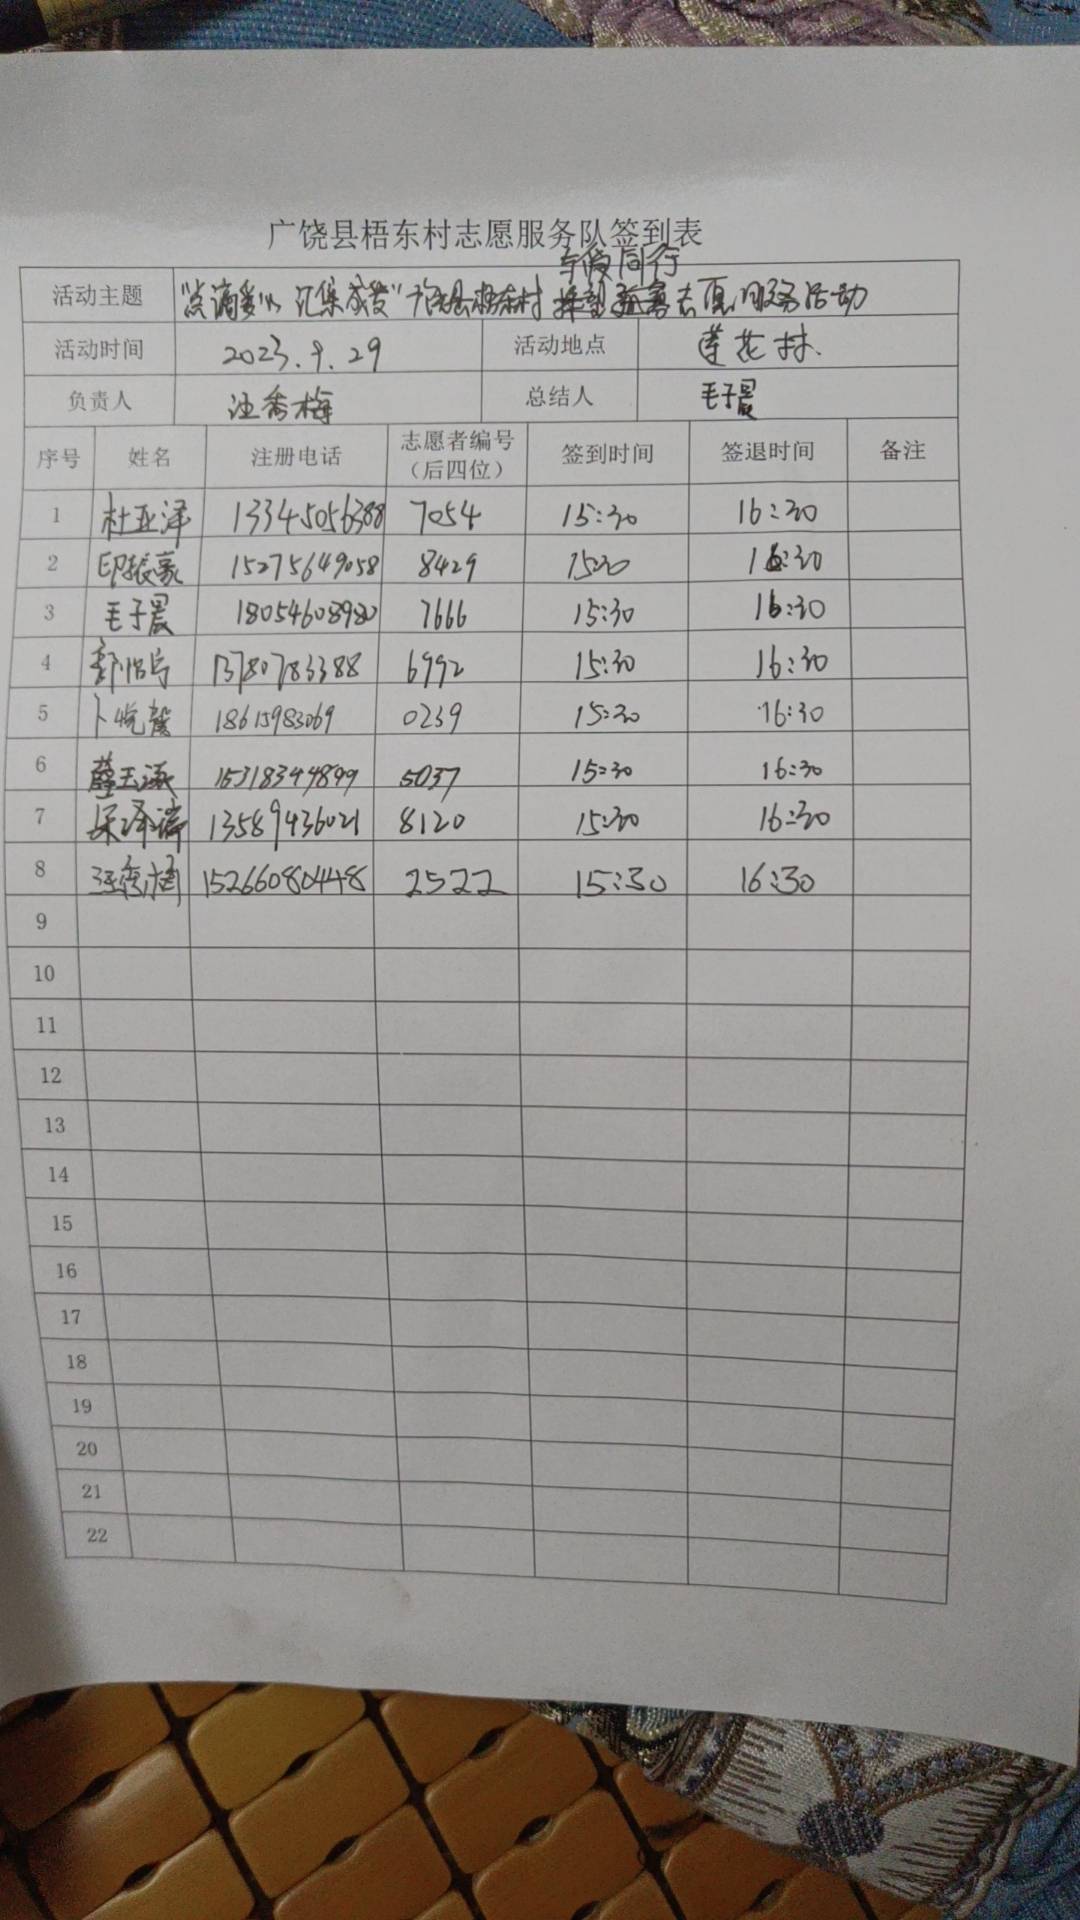 广饶县梧东村志愿服务队签到表
与爱同行
活动主题 "点滴爱心 汇集成爱"广饶县梧东村 志愿服务活动
活动时间 2023.9.29 活动地点 莲花村.
负责人 汪秀梅 总结人 毛子晨
序号 姓名 注册电话 志愿者编号（后四位） 签到时间 签退时间 备注
1 杜亚泽 13345056388 7054 15:30 16:30
2 印振豪 15275649058 8429 15:30 16:30
3 毛子晨 18054608980 7666 15:30 16:30
4 13780783388 6992 15:30 16:30
5 卜悦馨 18615983069 0239 15:30 16:30
6 薛玉涵 15318344899 5037 15:30 16:30
7 宋泽瑞 13589436021 8120 15:30 16:30
8 汪秀梅 15266080448 2522 15:30 16:30
9
10
11
12
13
14
15
16
17
18
19
20
21
22